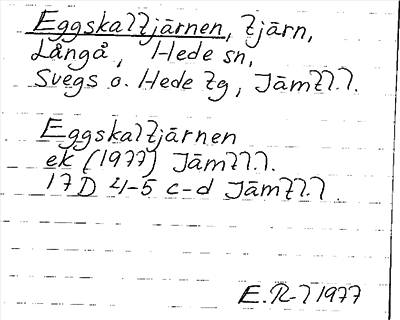 Eggskaltjärnen, tjärn,
Långå, Hede sn,
Svegs o. Hede tg, Jämtl.l.
Eggskaltjärnen
ek (1977) Jämtl.l.
17D 4-5 c-d Jämtl.l.
E.R-l 1977